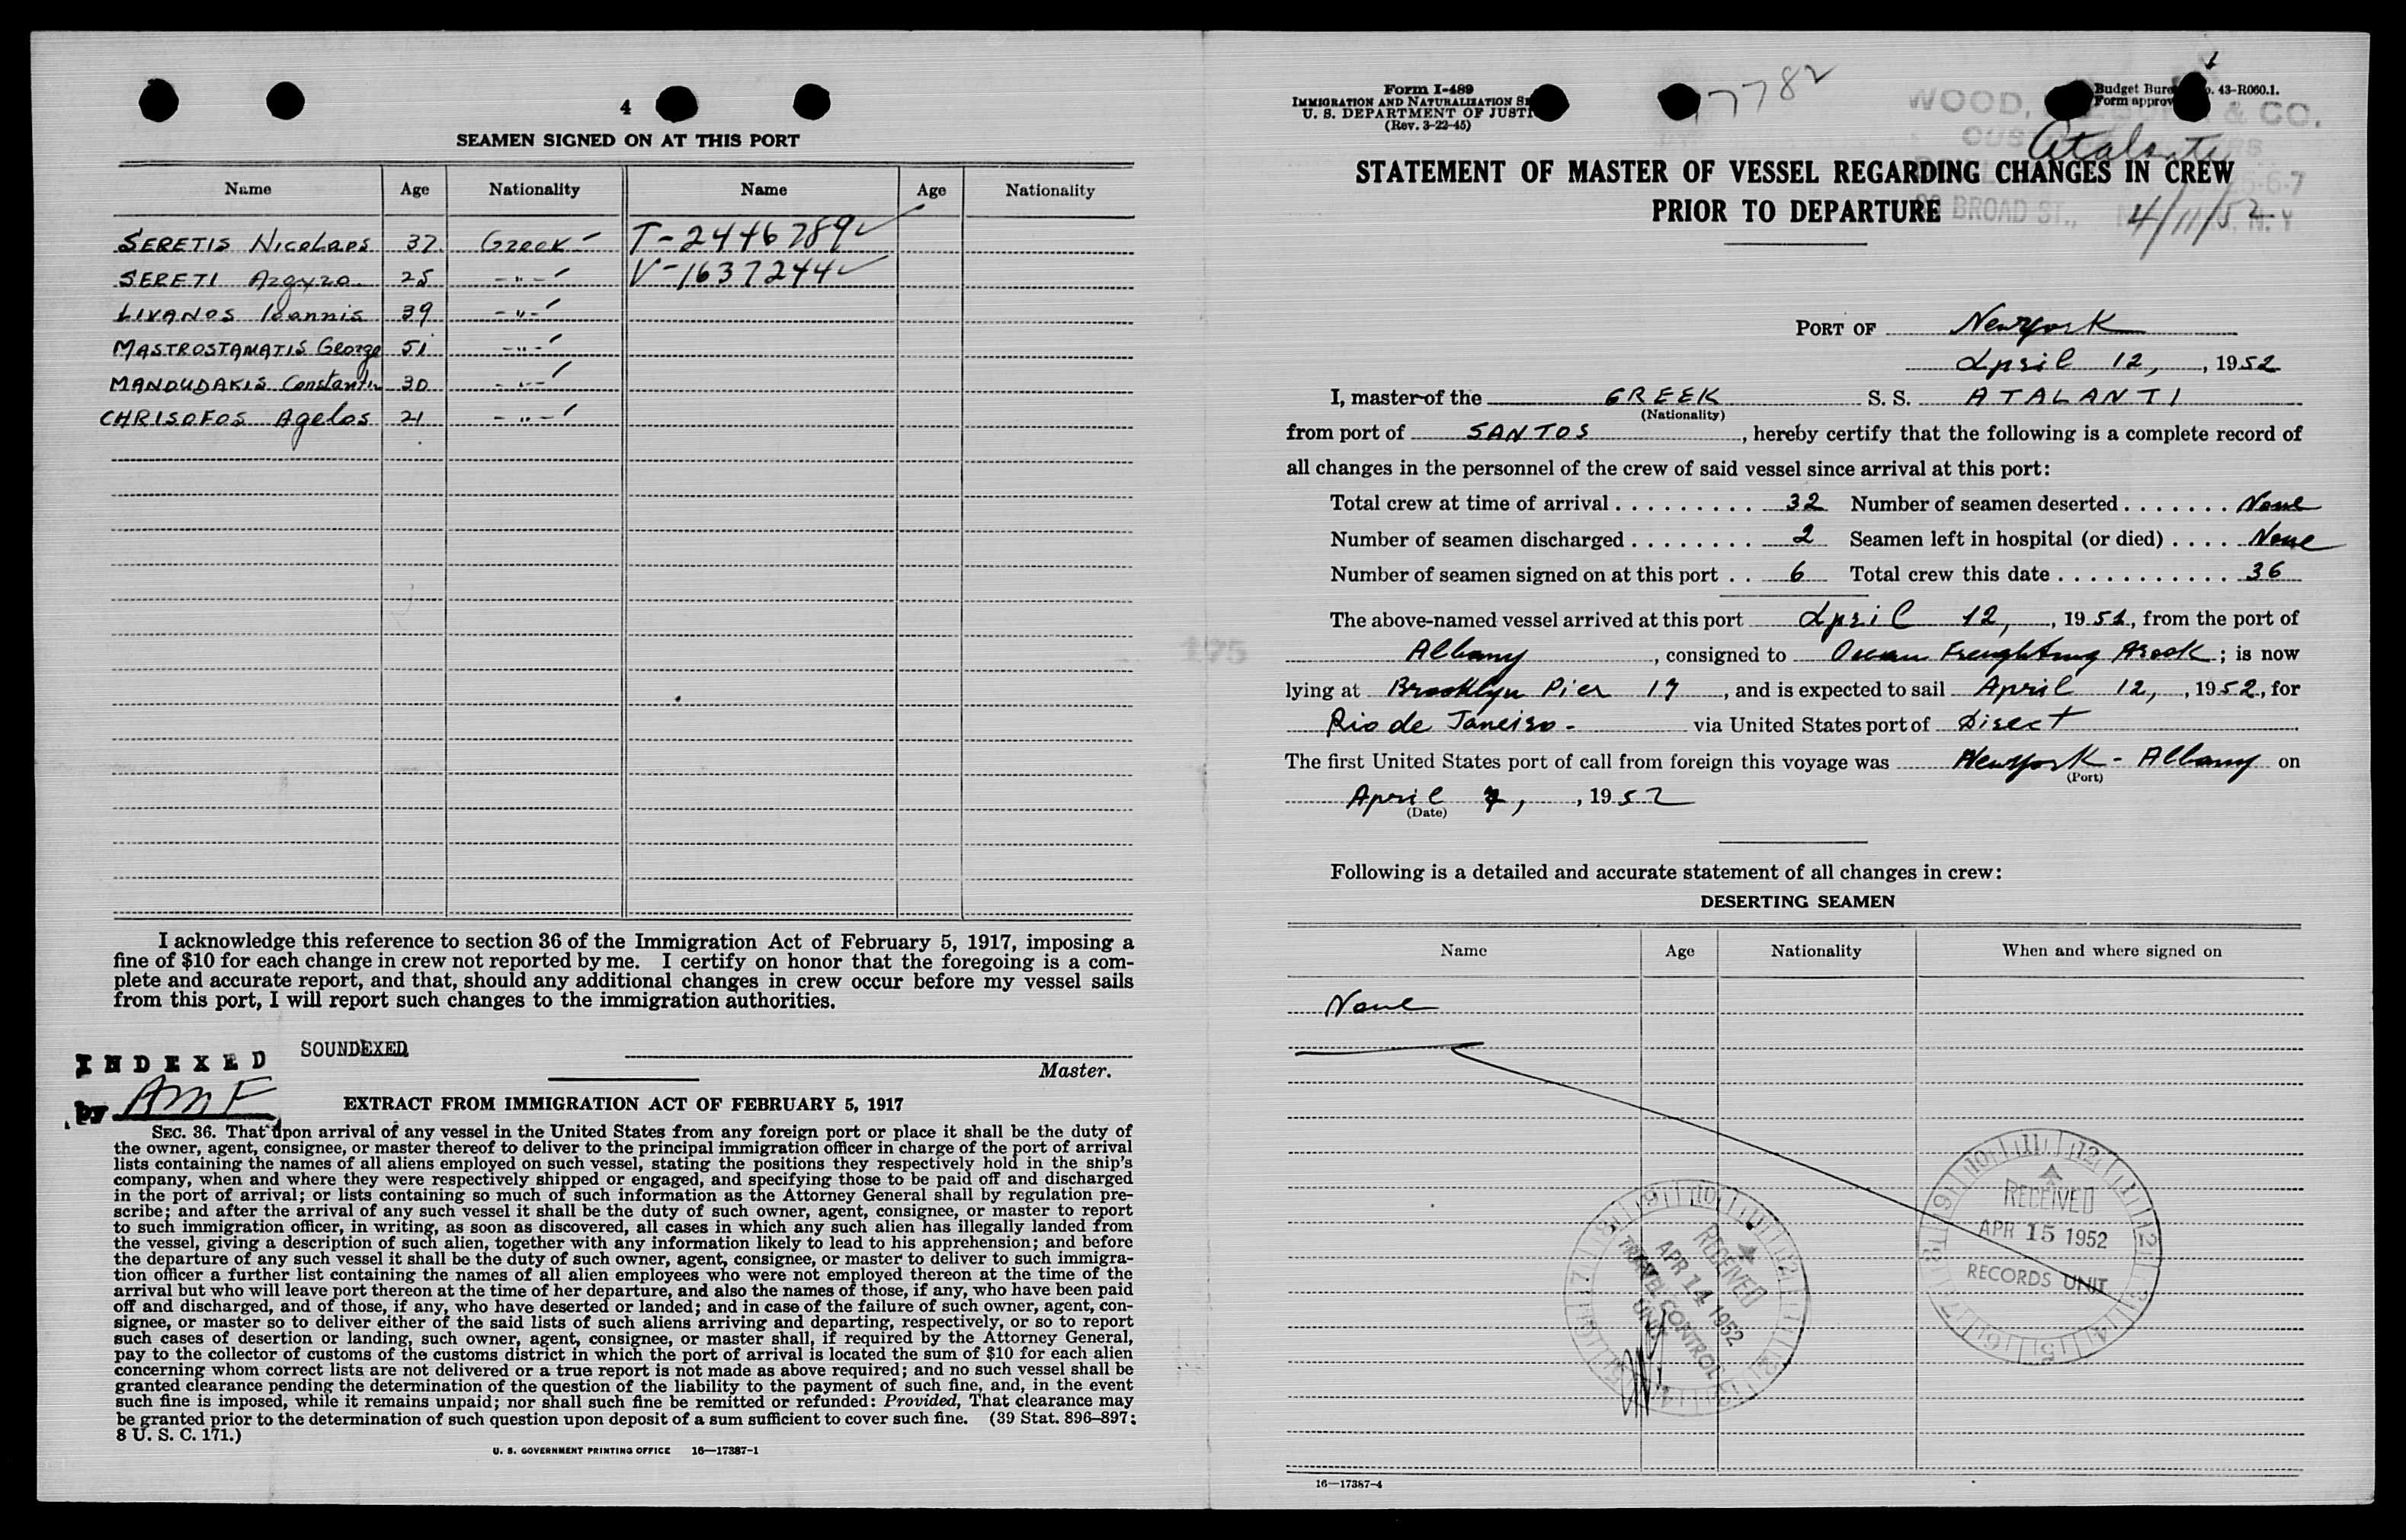 4
SEAMEN SIGNED ON AT THIS PORT
Name Age Nationality Name Age Nationality
SERETIS Nicolaos 37 Greek T-2446789
SERETI Argyro 25 - " - V-1637244
LIVANOS Ioannis 39 - " -
MASTROSTAMATIS George 51 - " -
MANDUDAKIS Constantin 30 - " -
CHRISOFOS Agelos 21 - " -
I acknowledge this reference to section 36 of the Immigration Act of February 5, 1917, imposing a
fine of $10 for each change in crew not reported by me. I certify on honor that the foregoing is a com-
plete and accurate report, and that, should any additional changes in crew occur before my vessel sails
from this port, I will report such changes to the immigration authorities.
INDEXED SOUNDEXED
Master.
by AMF
EXTRACT FROM IMMIGRATION ACT OF FEBRUARY 5, 1917
SEC. 36. That upon arrival of any vessel in the United States from any foreign port or place it shall be the duty of
the owner, agent, consignee, or master thereof to deliver to the principal immigration officer in charge of the port of arrival
lists containing the names of all aliens employed on such vessel, stating the positions they respectively hold in the ship's
company, when and where they were respectively shipped or engaged, and specifying those to be paid off and discharged
in the port of arrival; or lists containing so much of such information as the Attorney General shall by regulation pre-
scribe; and after the arrival of any such vessel it shall be the duty of such owner, agent, consignee, or master to report
to such immigration officer, in writing, as soon as discovered, all cases in which any such alien has illegally landed from
the vessel, giving a description of such alien, together with any information likely to lead to his apprehension; and before
the departure of any such vessel it shall be the duty of such owner, agent, consignee, or master to deliver to such immigra-
tion officer a further list containing the names of all alien employees who were not employed thereon at the time of the
arrival but who will leave port thereon at the time of her departure, and also the names of those, if any, who have been paid
off and discharged, and of those, if any, who have deserted or landed; and in case of the failure of such owner, agent, con-
signee, or master so to deliver either of the said lists of such aliens arriving and departing, respectively, or so to report
such cases of desertion or landing, such owner, agent, consignee, or master shall, if required by the Attorney General,
pay to the collector of customs of the customs district in which the port of arrival is located the sum of $10 for each alien
concerning whom correct lists are not delivered or a true report is not made as above required; and no such vessel shall be
granted clearance pending the determination of the question of the liability to the payment of such fine, and, in the event
such fine is imposed, while it remains unpaid; nor shall such fine be remitted or refunded: Provided, That clearance may
be granted prior to the determination of such question upon deposit of a sum sufficient to cover such fine. (39 Stat. 896–897;
8 U. S. C. 171.)
U. S. GOVERNMENT PRINTING OFFICE 16—17387-1
175
Form I-489
IMMIGRATION AND NATURALIZATION
U. S. DEPARTMENT OF
(Rev. 3-22-45)
7782
Budget 43-R060.1.
Form
WOOD, & CO.
Atalanti
STATEMENT OF MASTER OF VESSEL REGARDING CHANGES IN CREW
PRIOR TO DEPARTURE
BROAD ST., N. Y.
4/11/52
PORT OF New York
April 12, 1952
I, master of the GREEK S. S. ATALANTI
(Nationality)
from port of SANTOS, hereby certify that the following is a complete record of
all changes in the personnel of the crew of said vessel since arrival at this port:
Total crew at time of arrival . . . . . . . . . . 32 Number of seamen deserted . . . . . . . None
Number of seamen discharged . . . . . . . . 2 Seamen left in hospital (or died) . . . . None
Number of seamen signed on at this port . . 6 Total crew this date . . . . . . . . . . . . 36
The above-named vessel arrived at this port April 12, 1952, from the port of
Albany, consigned to Ocean Freighting ; is now
lying at Brooklyn Pier 17, and is expected to sail April 12, 1952, for
Rio de Janeiro - via United States port of Direct
The first United States port of call from foreign this voyage was New York - Albany on
(Port)
April 7, 1952
(Date)
Following is a detailed and accurate statement of all changes in crew:
DESERTING SEAMEN
Name Age Nationality When and where signed on
None
RECEIVED
APR 14 1952
TRAVEL CONTROL
UNIT
RECEIVED
APR 15 1952
RECORDS UNIT
16—17387-4